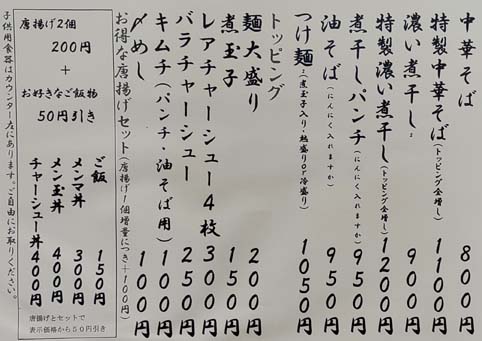 中華そば 800円
特製中華そば(トッピング全増し) 1100円
濃い煮干し 900円
特製濃い煮干し(トッピング全増し) 1200円
煮干しパンチ(にんにく入れますか) 950円
油そば(にんにく入れますか) 950円
つけ麺(煮玉子入り・熱盛りor冷盛り) 1050円
トッピング
麺大盛り 200円
煮玉子 150円
レアチャーシュー4枚 300円
バラチャーシュー 250円
キムチ(パンチ・油そば用) 100円
〆めし 100円
お得な唐揚げセット(唐揚げ1個増量につき+100円)
唐揚げ2個
200円
+
お好きなご飯物
50円引き
ご飯 150円
メンマ丼 300円
メン玉丼 400円
チャーシュー丼 400円
唐揚げとセットで
表示価格から50円引き
子供用食器はカウンター左にあります。ご自由にお取りください。